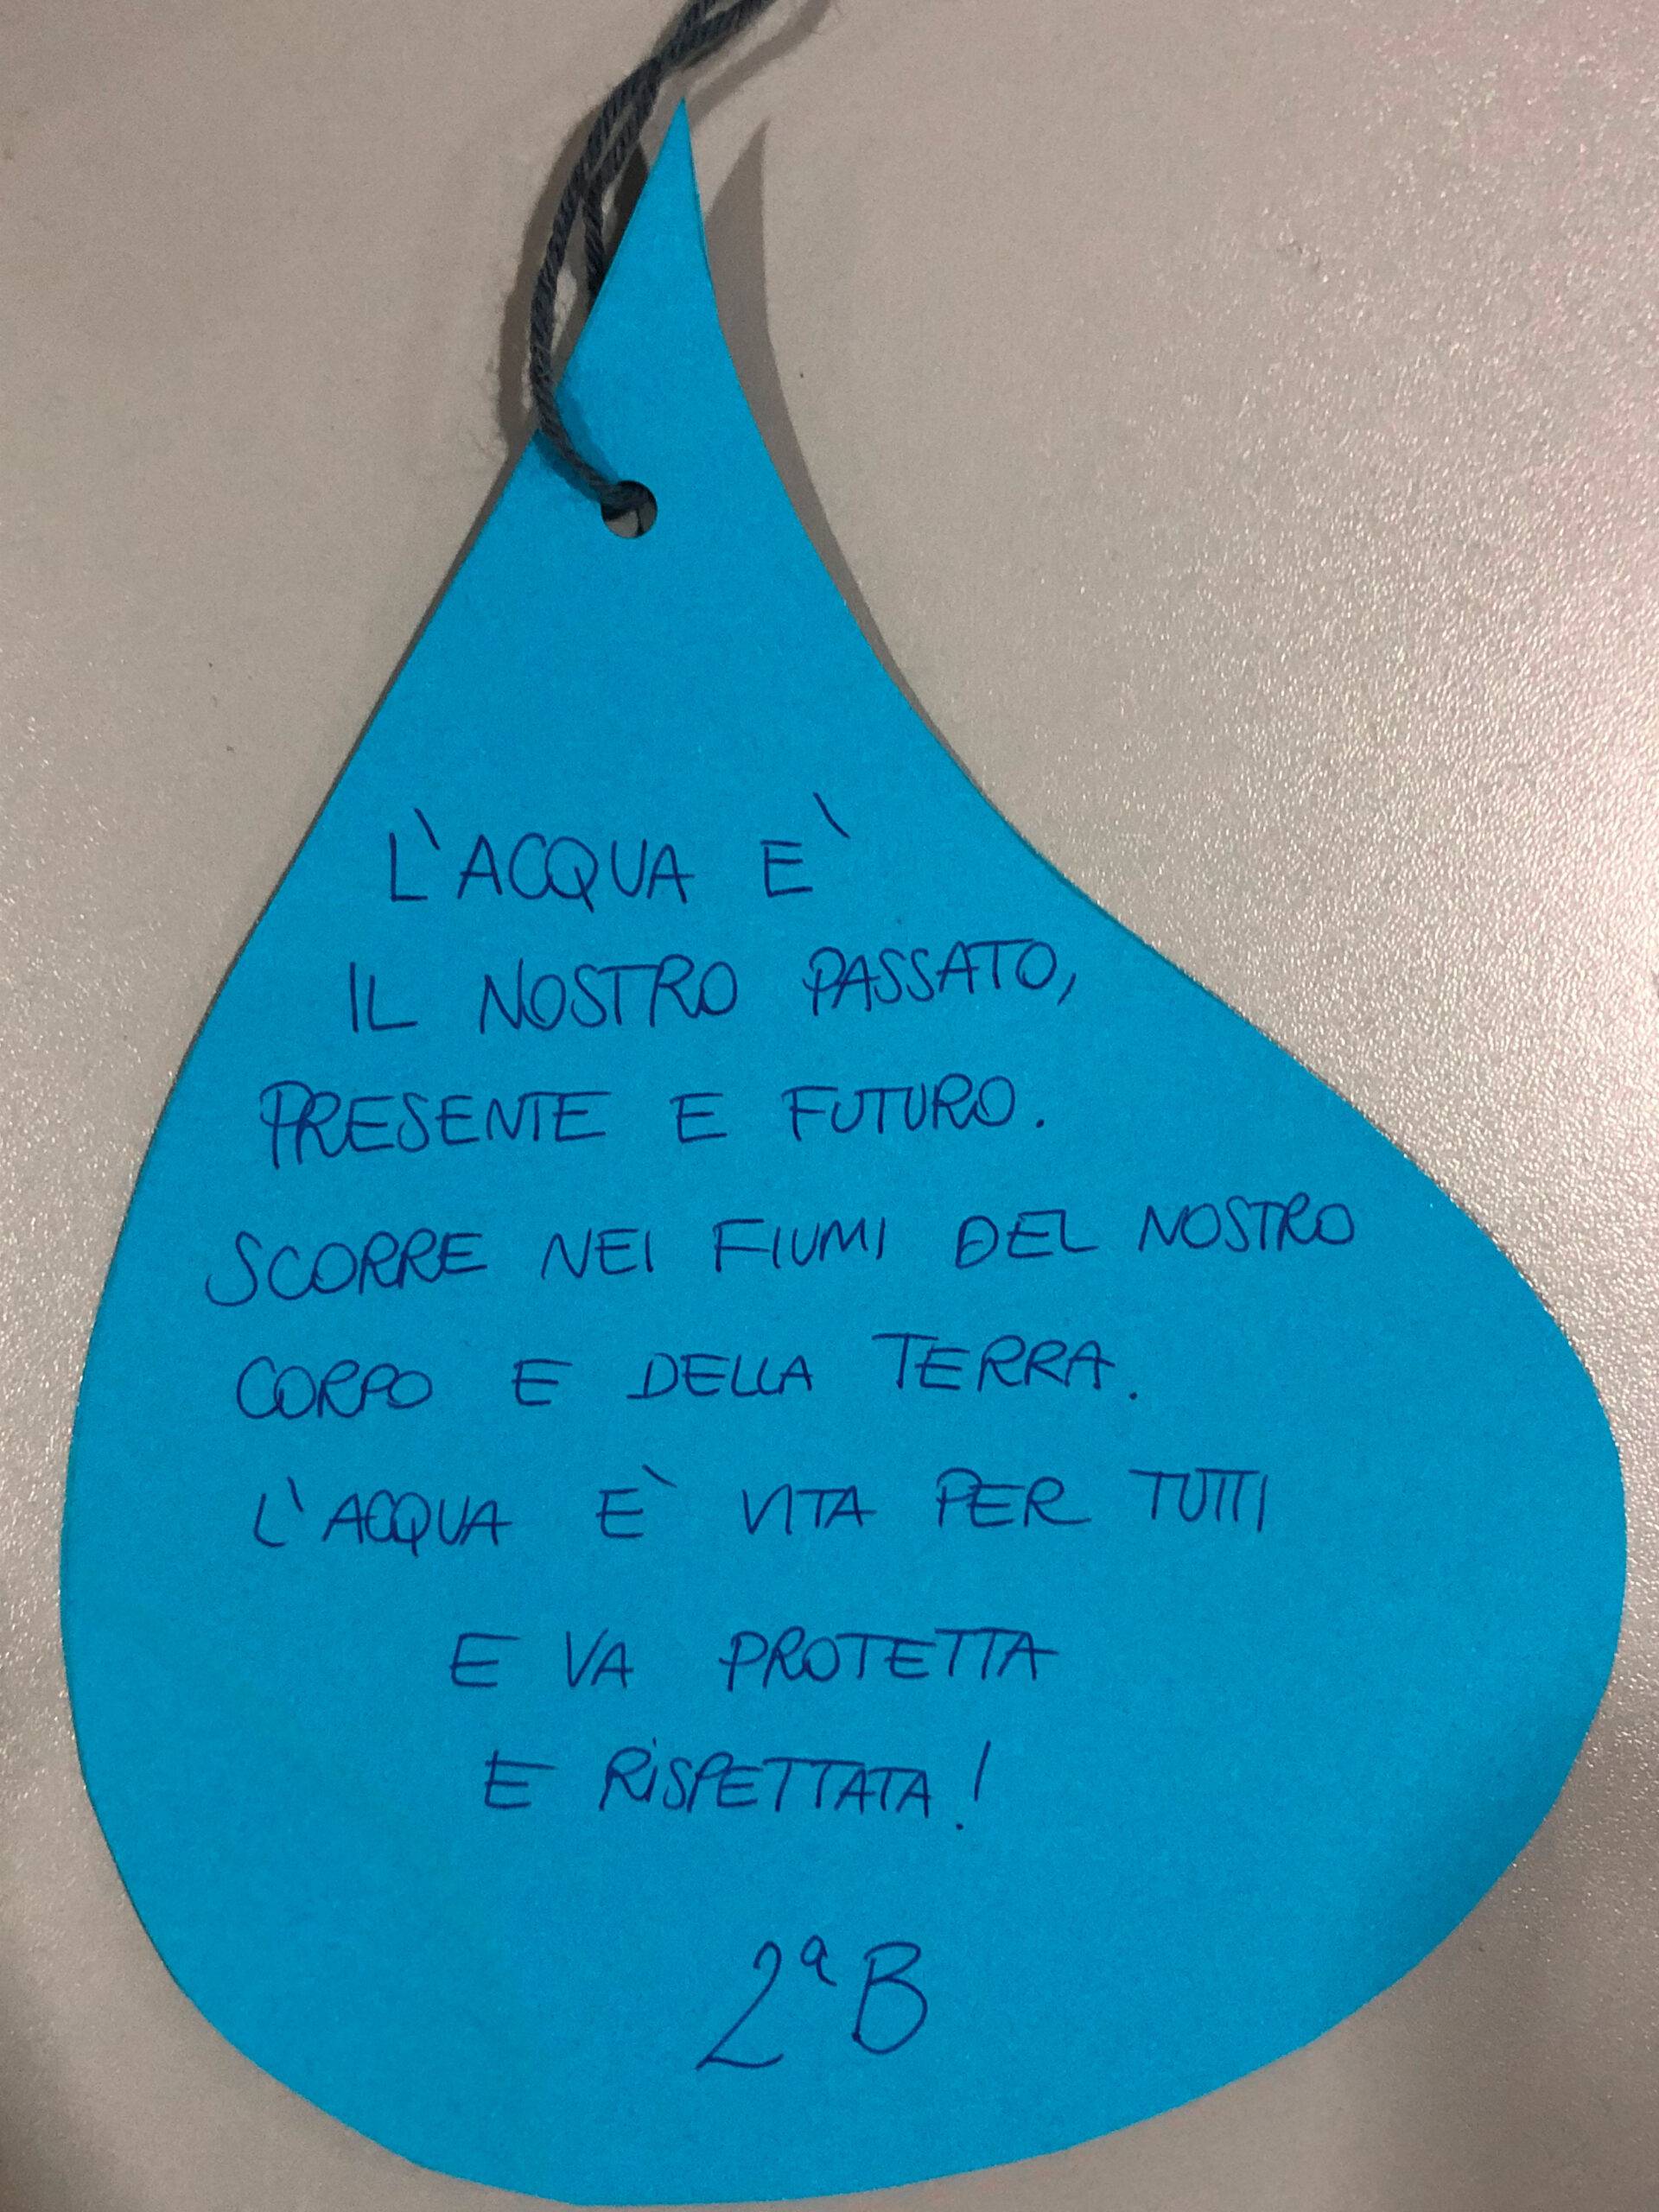 L'ACQUA E`
IL NOSTRO PASSATO,
PRESENTE E FUTURO.
SCORRE NEI FIUMI DEL NOSTRO
CORPO E DELLA TERRA.
L'ACQUA E` VITA PER TUTTI
E VA PROTETTA
E RISPETTATA!
2ª B